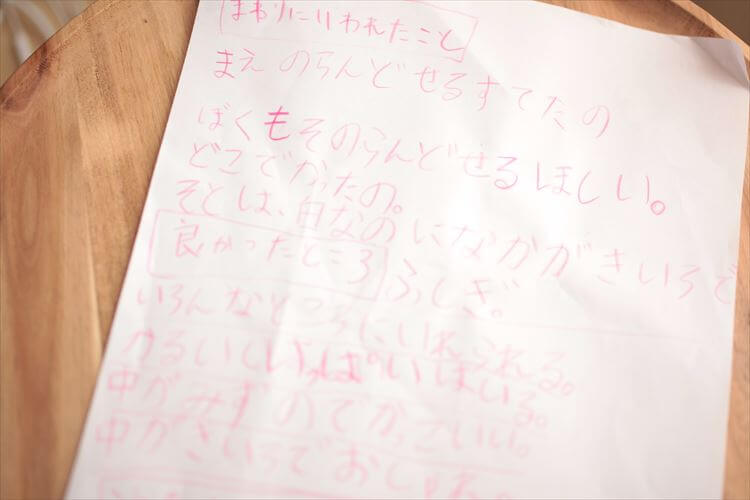 まわりにいわれたこと
まえのらんどせるすてたの
ぼくもそのらんどせるほしい。
どこでかったの。
そとは、白なのになかがきいろで
ふしぎ。
良かったところ
いろんなところにいれられる。
かるいしいっぱいはいる。
中がみずのでかっこいい。
中がきいろでおしゃれ。